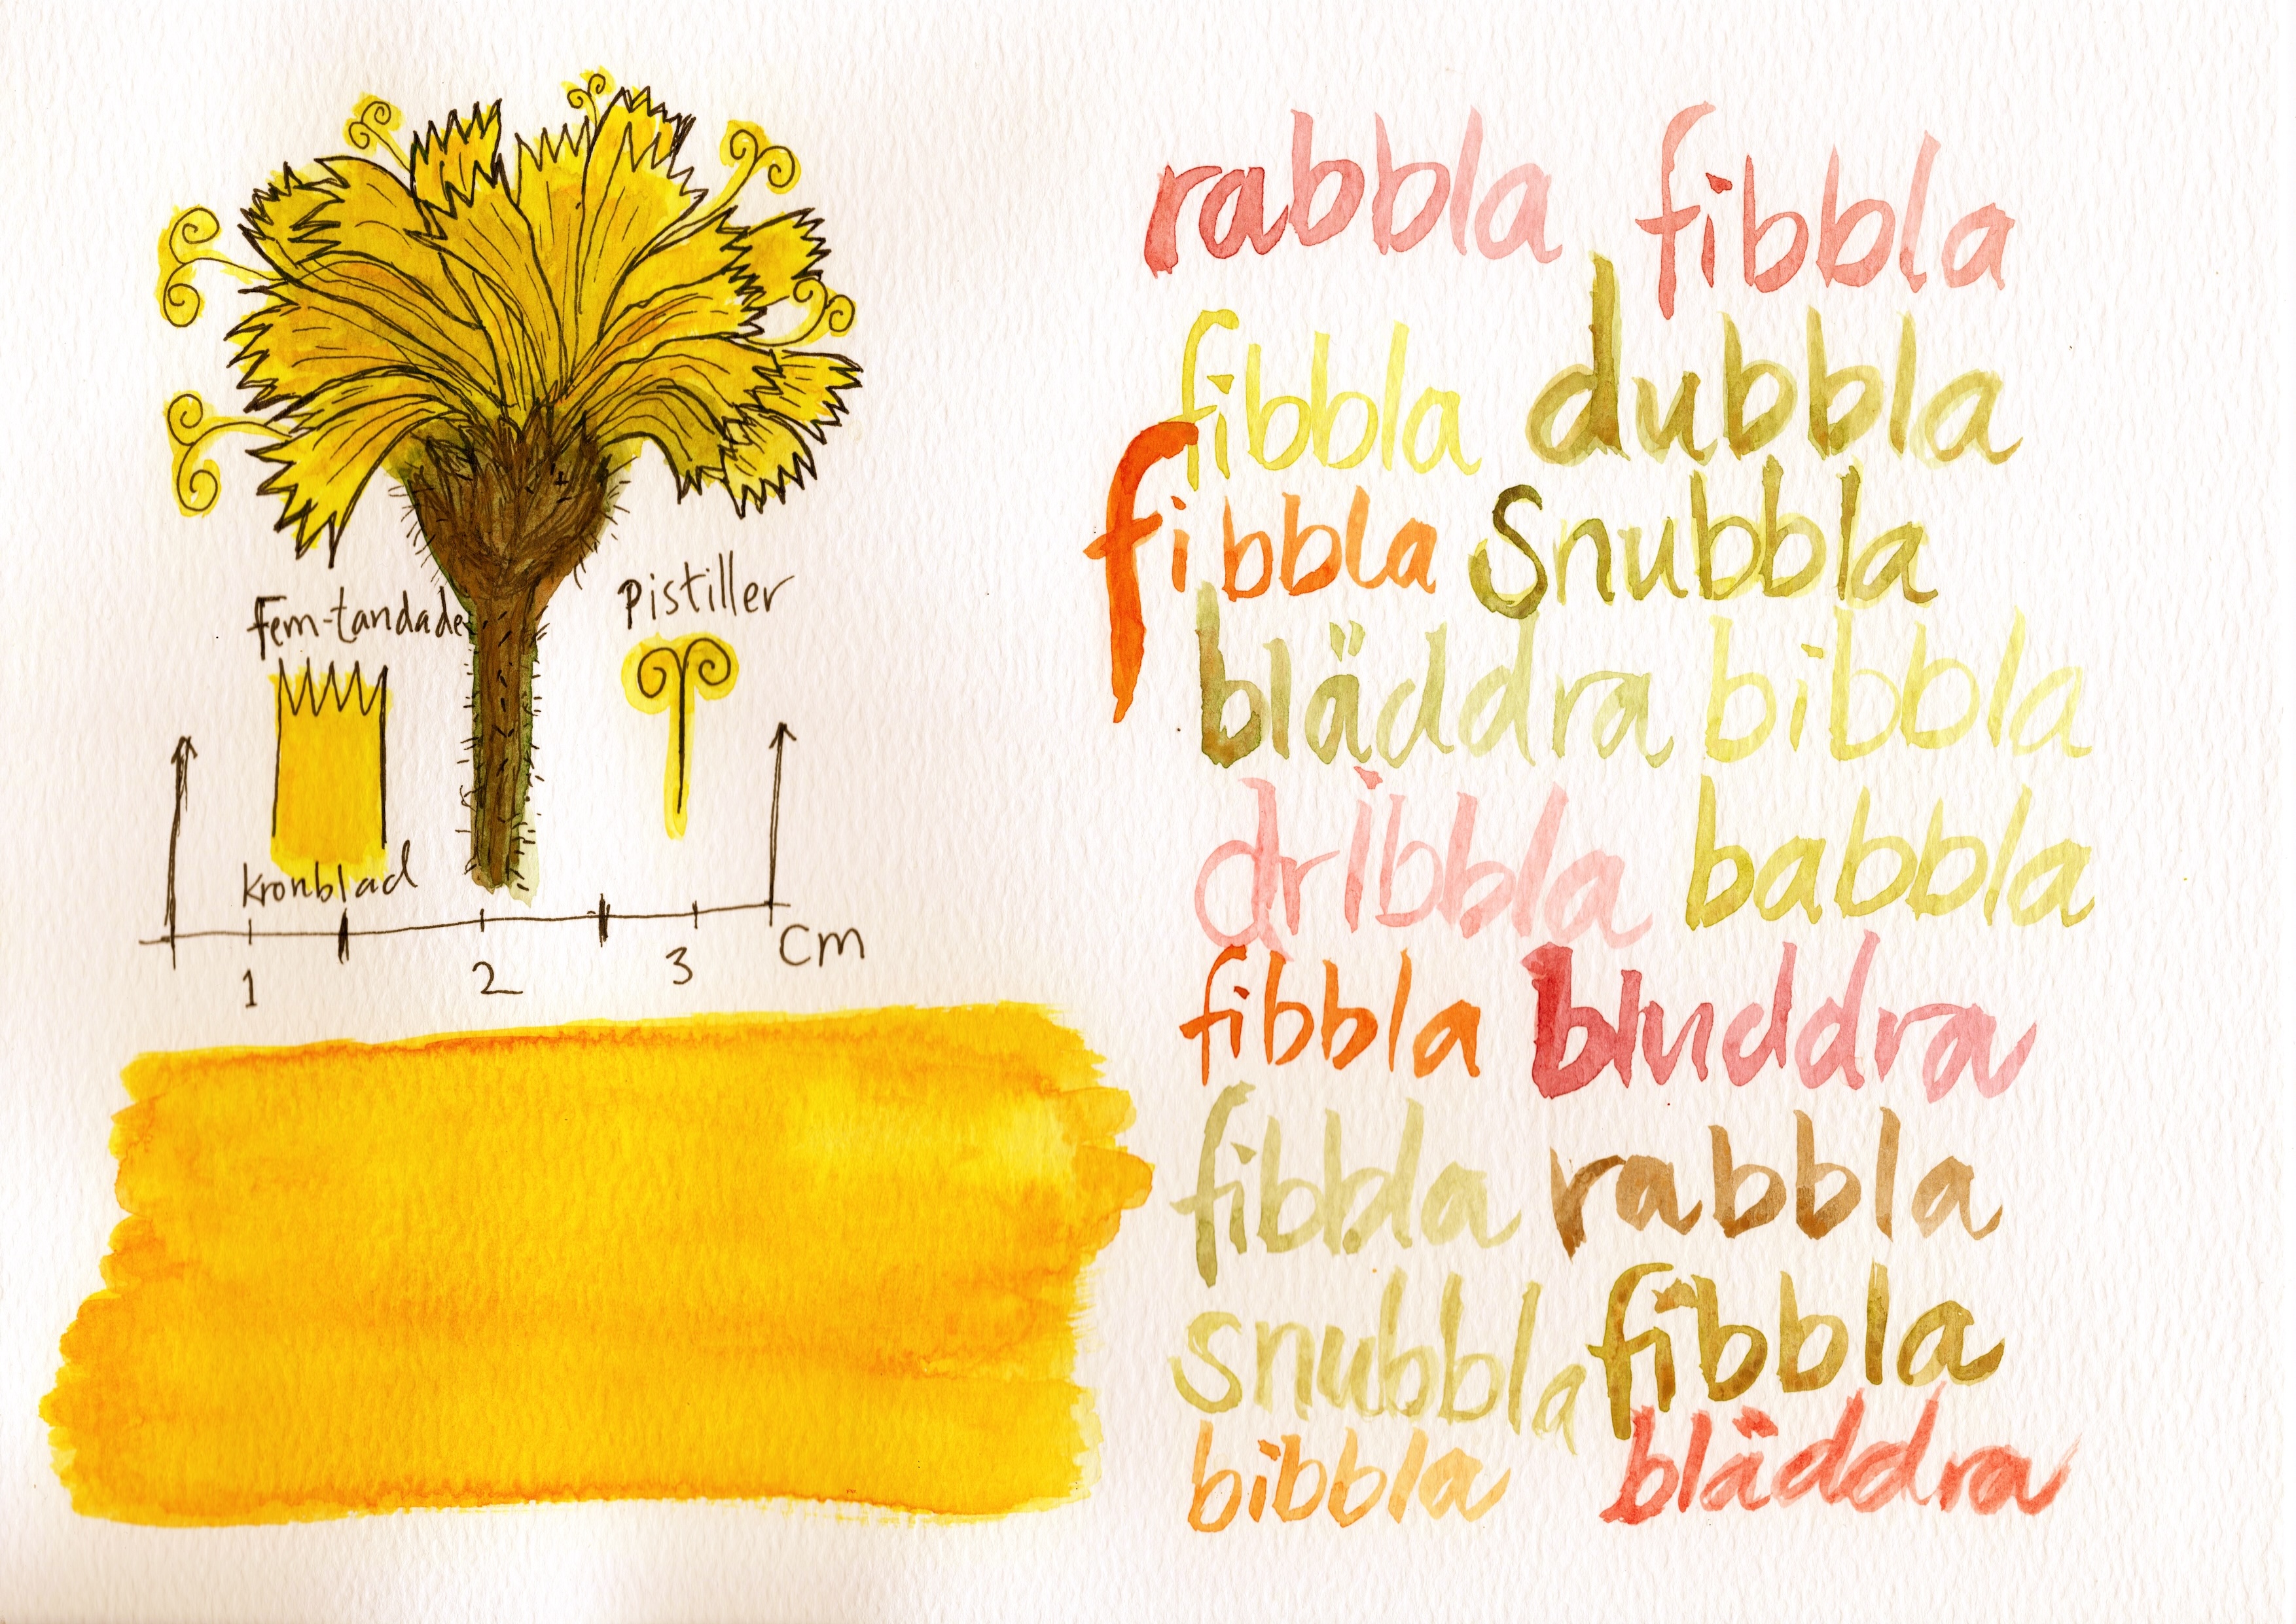 Fem-tandade
pistiller
kronblad
1 2 3 cm
rabbla fibbla
fibbla dubbla
fibbla Snubbla
bläddra bibbla
dribbla babbla
fibbla bluddra
fibbla rabbla
snubbla fibbla
bibbla bläddra